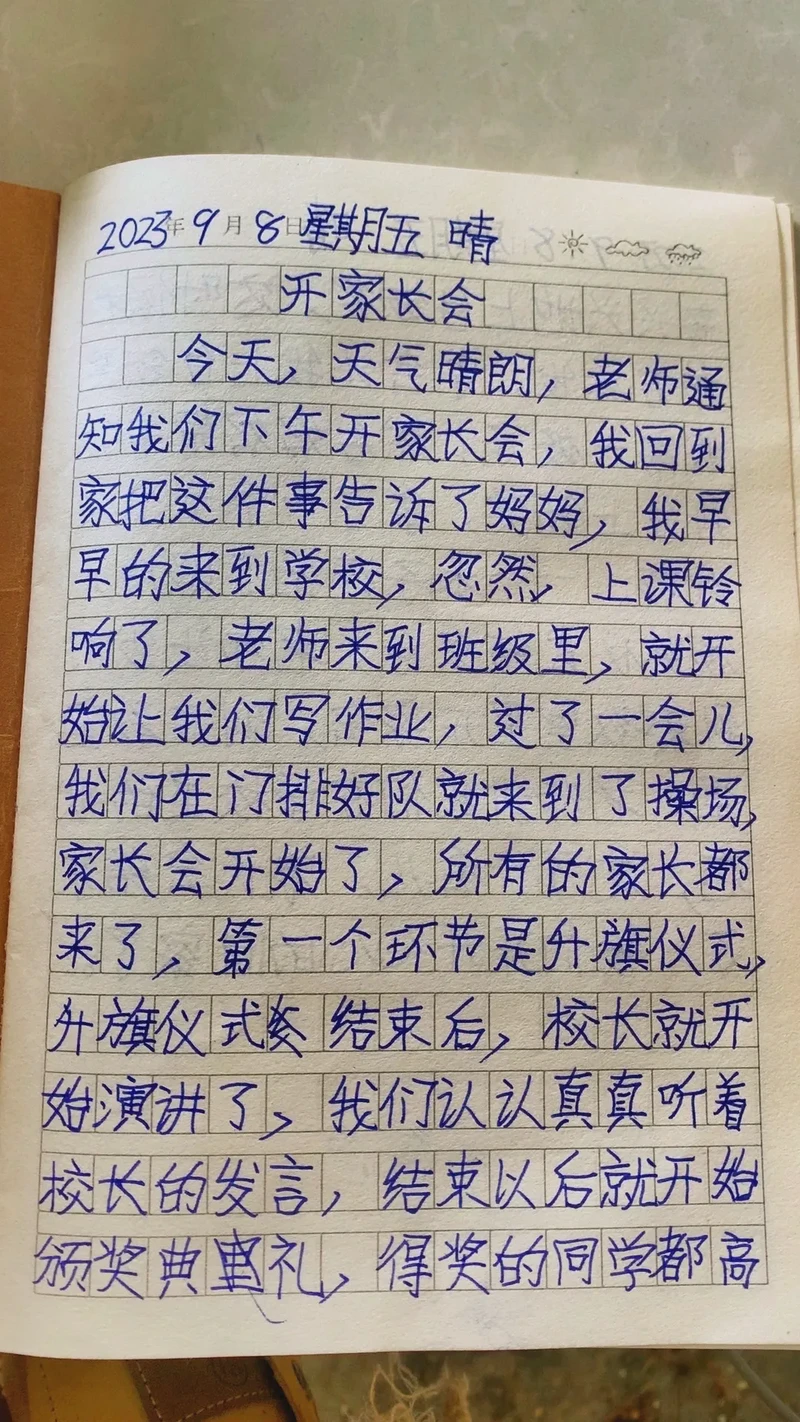 2023年9月8日星期五 晴
开家长会
今天，天气晴朗，老师通
知我们下午开家长会，我回到
家把这件事告诉了妈妈，我早
早的来到学校，忽然，上课铃
响了，老师来到班级里，就开
始让我们写作业，过了一会儿，
我们在门排好队就来到了操场，
家长会开始了，所有的家长都
来了，第一个环节是升旗仪式，
升旗仪式结束后，校长就开
始演讲了，我们认认真真听着
校长的发言，结束以后就开始
颁奖典礼，得奖的同学都高